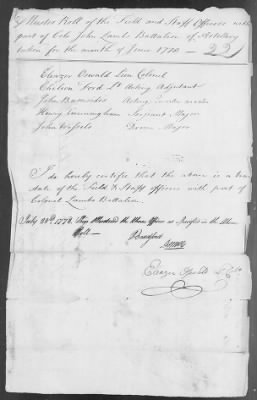 A Muster Roll of the Field and Staff Officers with
part of Colo John Lamb Battalion of Artillery
taken for the month of June 1778 — 22
Eleazer Oswald Lieu Colonel
Chilion Ford Lt Acting Adjutant
John Acting
Henry Cunningham Serjeant Major
John Drum Major
I do hereby certify that the above is a true
state of the Field & Staff officers with part of
Colonel Lambs Battalion
July 28th 1778 Then Mustered the Above Officers as Specified in the Above
Roll —
Eleazr Oswald Lt Colo